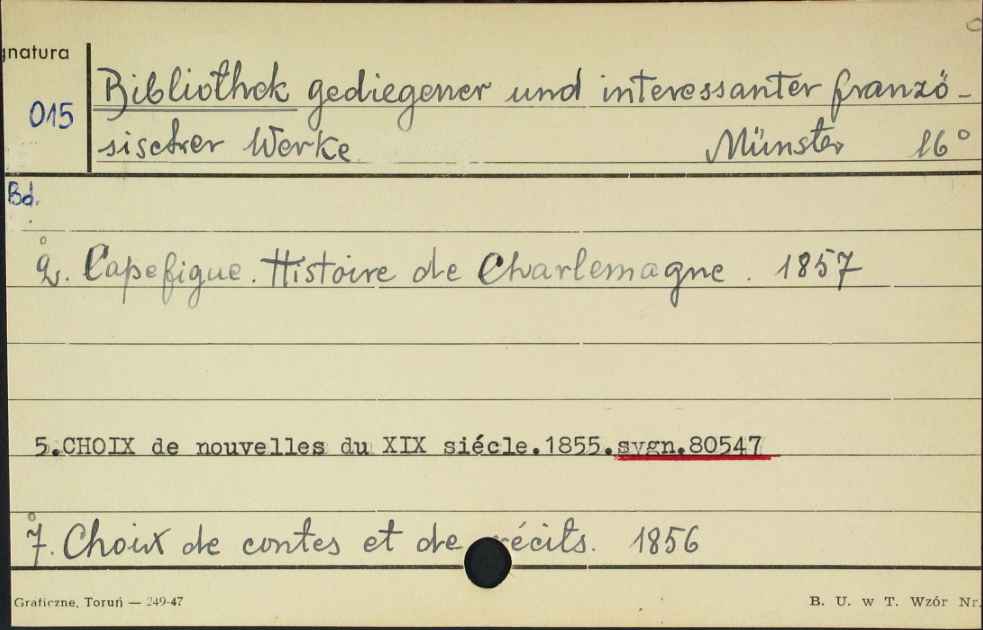 gnatura
015
Bibliothek gediegener und interessanter franzö-
sischer Werke Münster 16°
Bd.
2. Capefigue. Histoire de Charlemagne. 1857
5.CHOIX de nouvelles du XIX siécle.1855.sygn.80547
7. Choix de contes et de récits. 1856
Graficzne, Toruń — 249-47
B. U. w T. Wzór Nr.